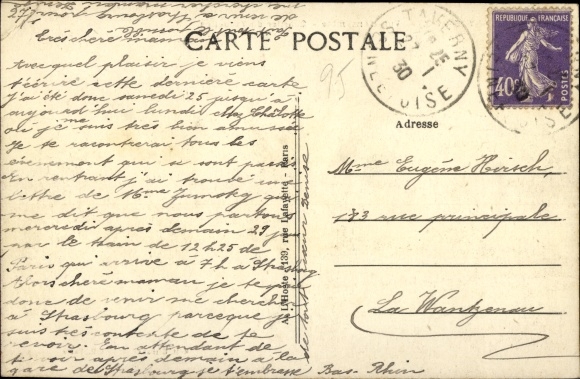 CARTE POSTALE
Très chère maman
Avec quel plaisir je viens
t'écrire cette dernière carte
J'ai été donc samedi 25 jusqu'à
aujourd'hui lundi chez Charlotte
où je me suis très bien amusée
Je te raconterai tous les
évènement qui se sont passé
En rentrant j'ai trouvé une
lettre de Mme
me dit que nous partons
mercredi après demain 29
par le train de 12h25 de
Paris qui arrive à 7h à Strasbg
Alors chère maman je te prie
donc de venir me chercher
à Strasbourg parceque je
suis très contente de te
revoir. En attendant de
te voir après demain à la
gare de Strasbourg je t'embrasse
de tout coeur Denise
An. L'Hoste 139, rue Lafayette - Paris
95
TAVERNY
27 - 1
30
SEINE ET OISE
REPUBLIQUE FRANÇAISE
40c
POSTES
Adresse
Mme Eugène Hirsch,
173 rue principale
La Wantzenau
Bas-Rhin